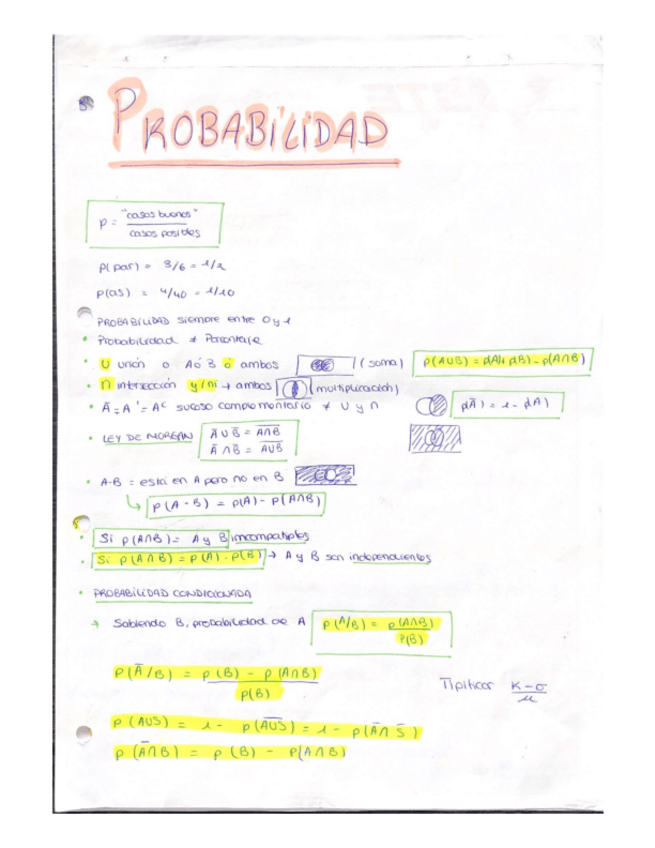 PROBABILIDAD
p = "casos buenos" / casos posibles
p(par) = 3/6 = 1/2
p(as) = 4/40 = 1/10
PROBABILIDAD siempre entre 0 y 1
Probabilidad ≠ Porcentaje
U unión o A ó B ó ambos (suma) p(AUB) = p(A)+p(B)-p(A∩B)
∩ intersección y/ni → ambos (multiplicación)
Ā = A' = Aᶜ suceso complementario ≠ U y ∩ p(Ā) = 1 - p(A)
LEY DE MORGAN Ā U B̅ = A̅∩̅B̅
Ā ∩ B̅ = A̅U̅B̅
A-B = está en A pero no en B
↳ p(A-B) = p(A) - p(A∩B)
Si p(A∩B) = A y B imcompatibles
Si p(A∩B) = p(A) · p(B) → A y B son independientes
PROBABILIDAD CONDICIONADA
→ Sabiendo B, probabilidad de A p(A/B) = p(A∩B) / P(B)
p(Ā/B) = p(B) - p(A∩B) / p(B)
Tipificar K-σ / μ
p(AUS) = 1 - p(A̅U̅S̅) = 1 - p(Ā∩S̅)
p(Ā∩B) = p(B) - P(A∩B)